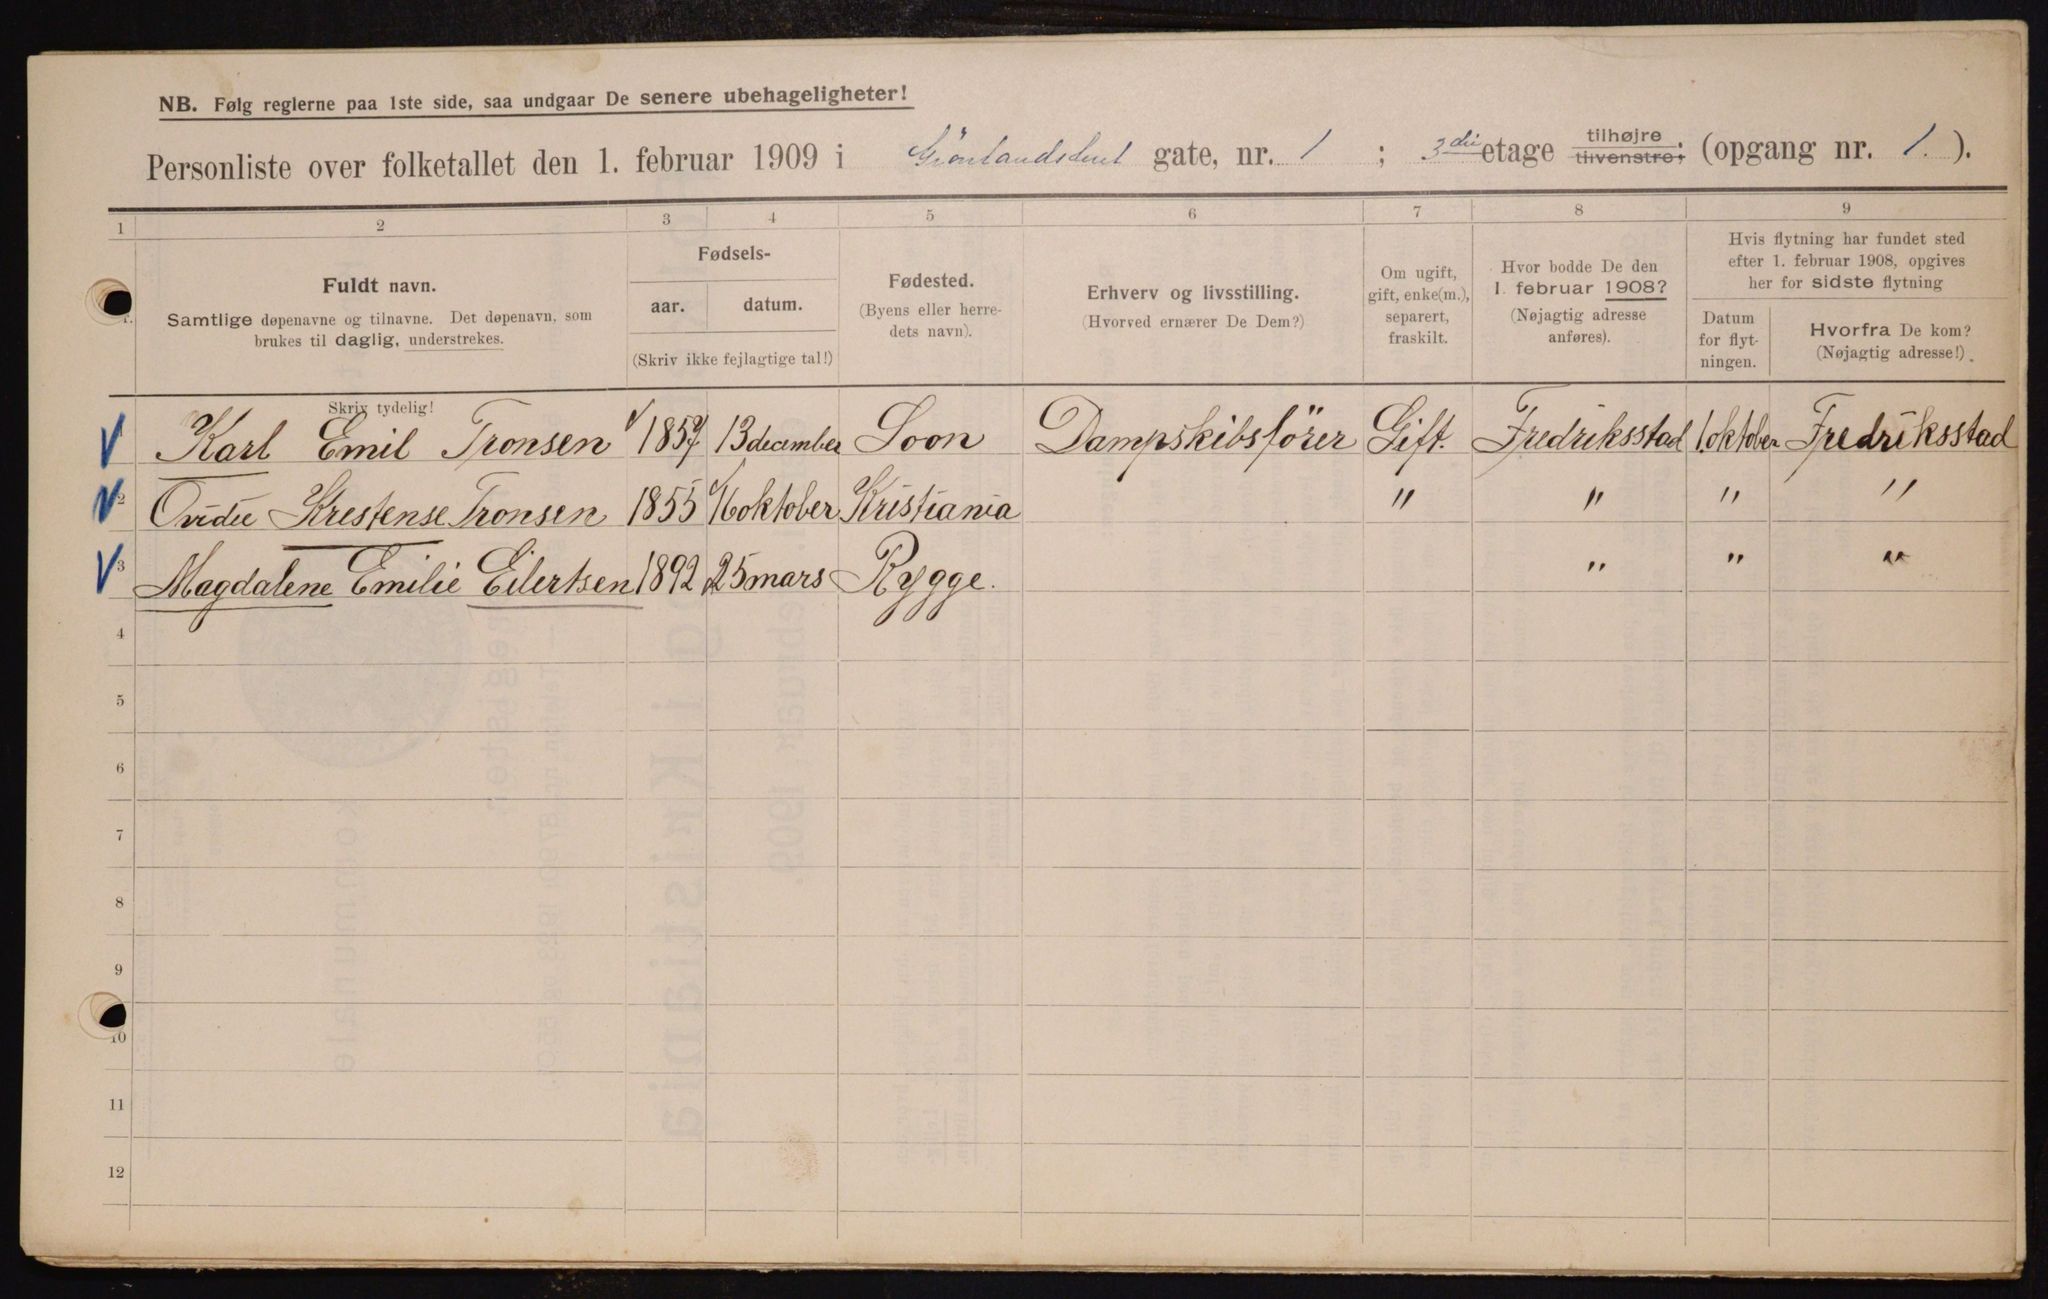 NB. Følg reglerne paa 1ste side, saa undgaar De senere ubehageligheter!
Personliste over folketallet den 1. februar 1909 i gate, nr. 1 ; 3die etage tilhøjre tilvenstre; (opgang nr. 1.).
1 2 3 4 5 6 7 8 9
Fuldt navn.
Samtlige døpenavne og tilnavne. Det døpenavn, som
brukes til daglig, understrekes.
Skriv tydelig!
Fødsels-
aar. datum.
(Skriv ikke fejlagtige tal!)
Fødested.
(Byens eller herre-
dets navn).
Erhverv og livsstilling.
(Hvorved ernærer De Dem?)
Om ugift,
gift, enke(m.),
separert,
fraskilt.
Hvor bodde De den
1. februar 1908?
(Nøjagtig adresse
anføres).
Hvis flytning har fundet sted
efter 1. februar 1908, opgives
her for sidste flytning
Datum
for flyt-
ningen.
Hvorfra De kom?
(Nøjagtig adresse!).
Karl Emil Tronsen 1857 13 december Soon Dampskibsfører Gift. Fredriksstad 1. oktober Fredriksstad
2 Krestense Tronsen 1855 16 oktober Kristiania " " " "
3 Magdalene Emilie Eilertsen 1892 25 mars Rygge. " " "
4
5
6
7
8
9
10
11
12